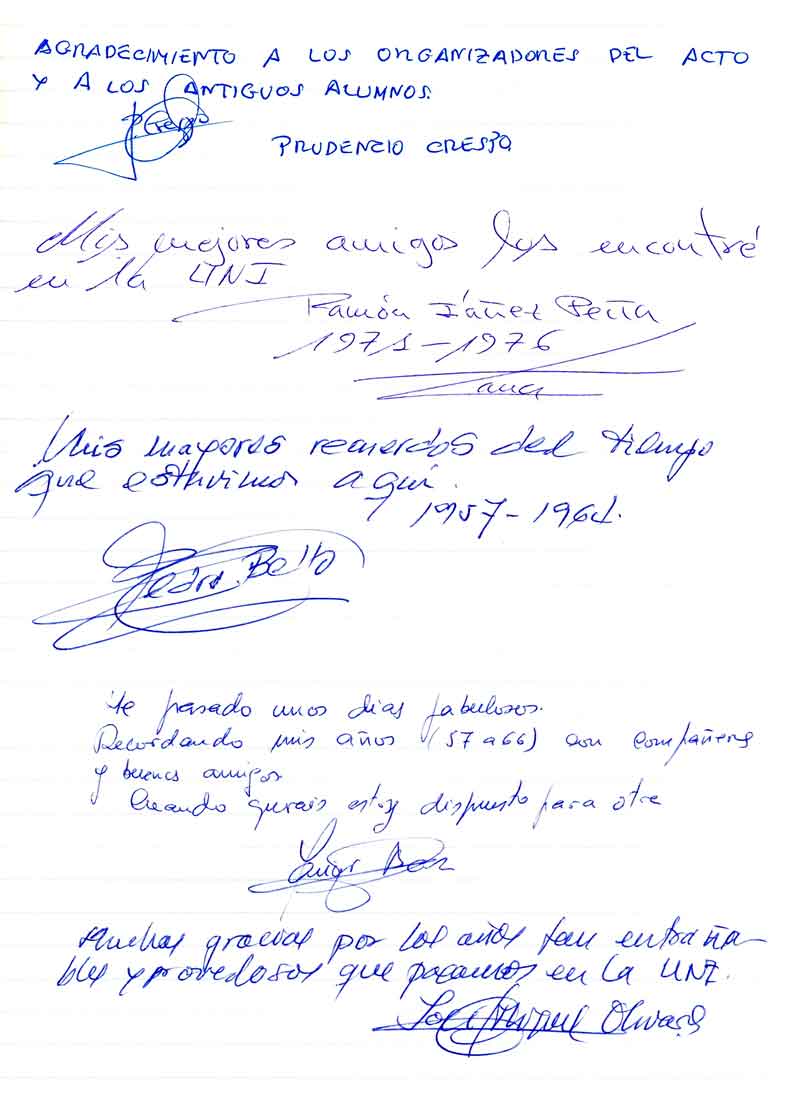 AGRADECIMIENTO A LOS ORGANIZADORES DEL ACTO
Y A LOS ANTIGUOS ALUMNOS.
P. Crespo
PRUDENCIO CRESPO
Mis mejores amigos los encontré
en la UNI
Ramón Iáñez Peña
1971-1976
Mis mayores recuerdos del tiempo
que estuvimos aquí.
1957-1964.
Pedro Bello
He pasado unos dias fabulosos.
Recordando mis años (57 a 66) con compañeros
y buenos amigos
Cuando querais estoy dispuesto para otra
Muchas gracias por los años tan entraña-
bles y provedosos que pasamos en la UNI.
José Miguel Olivares